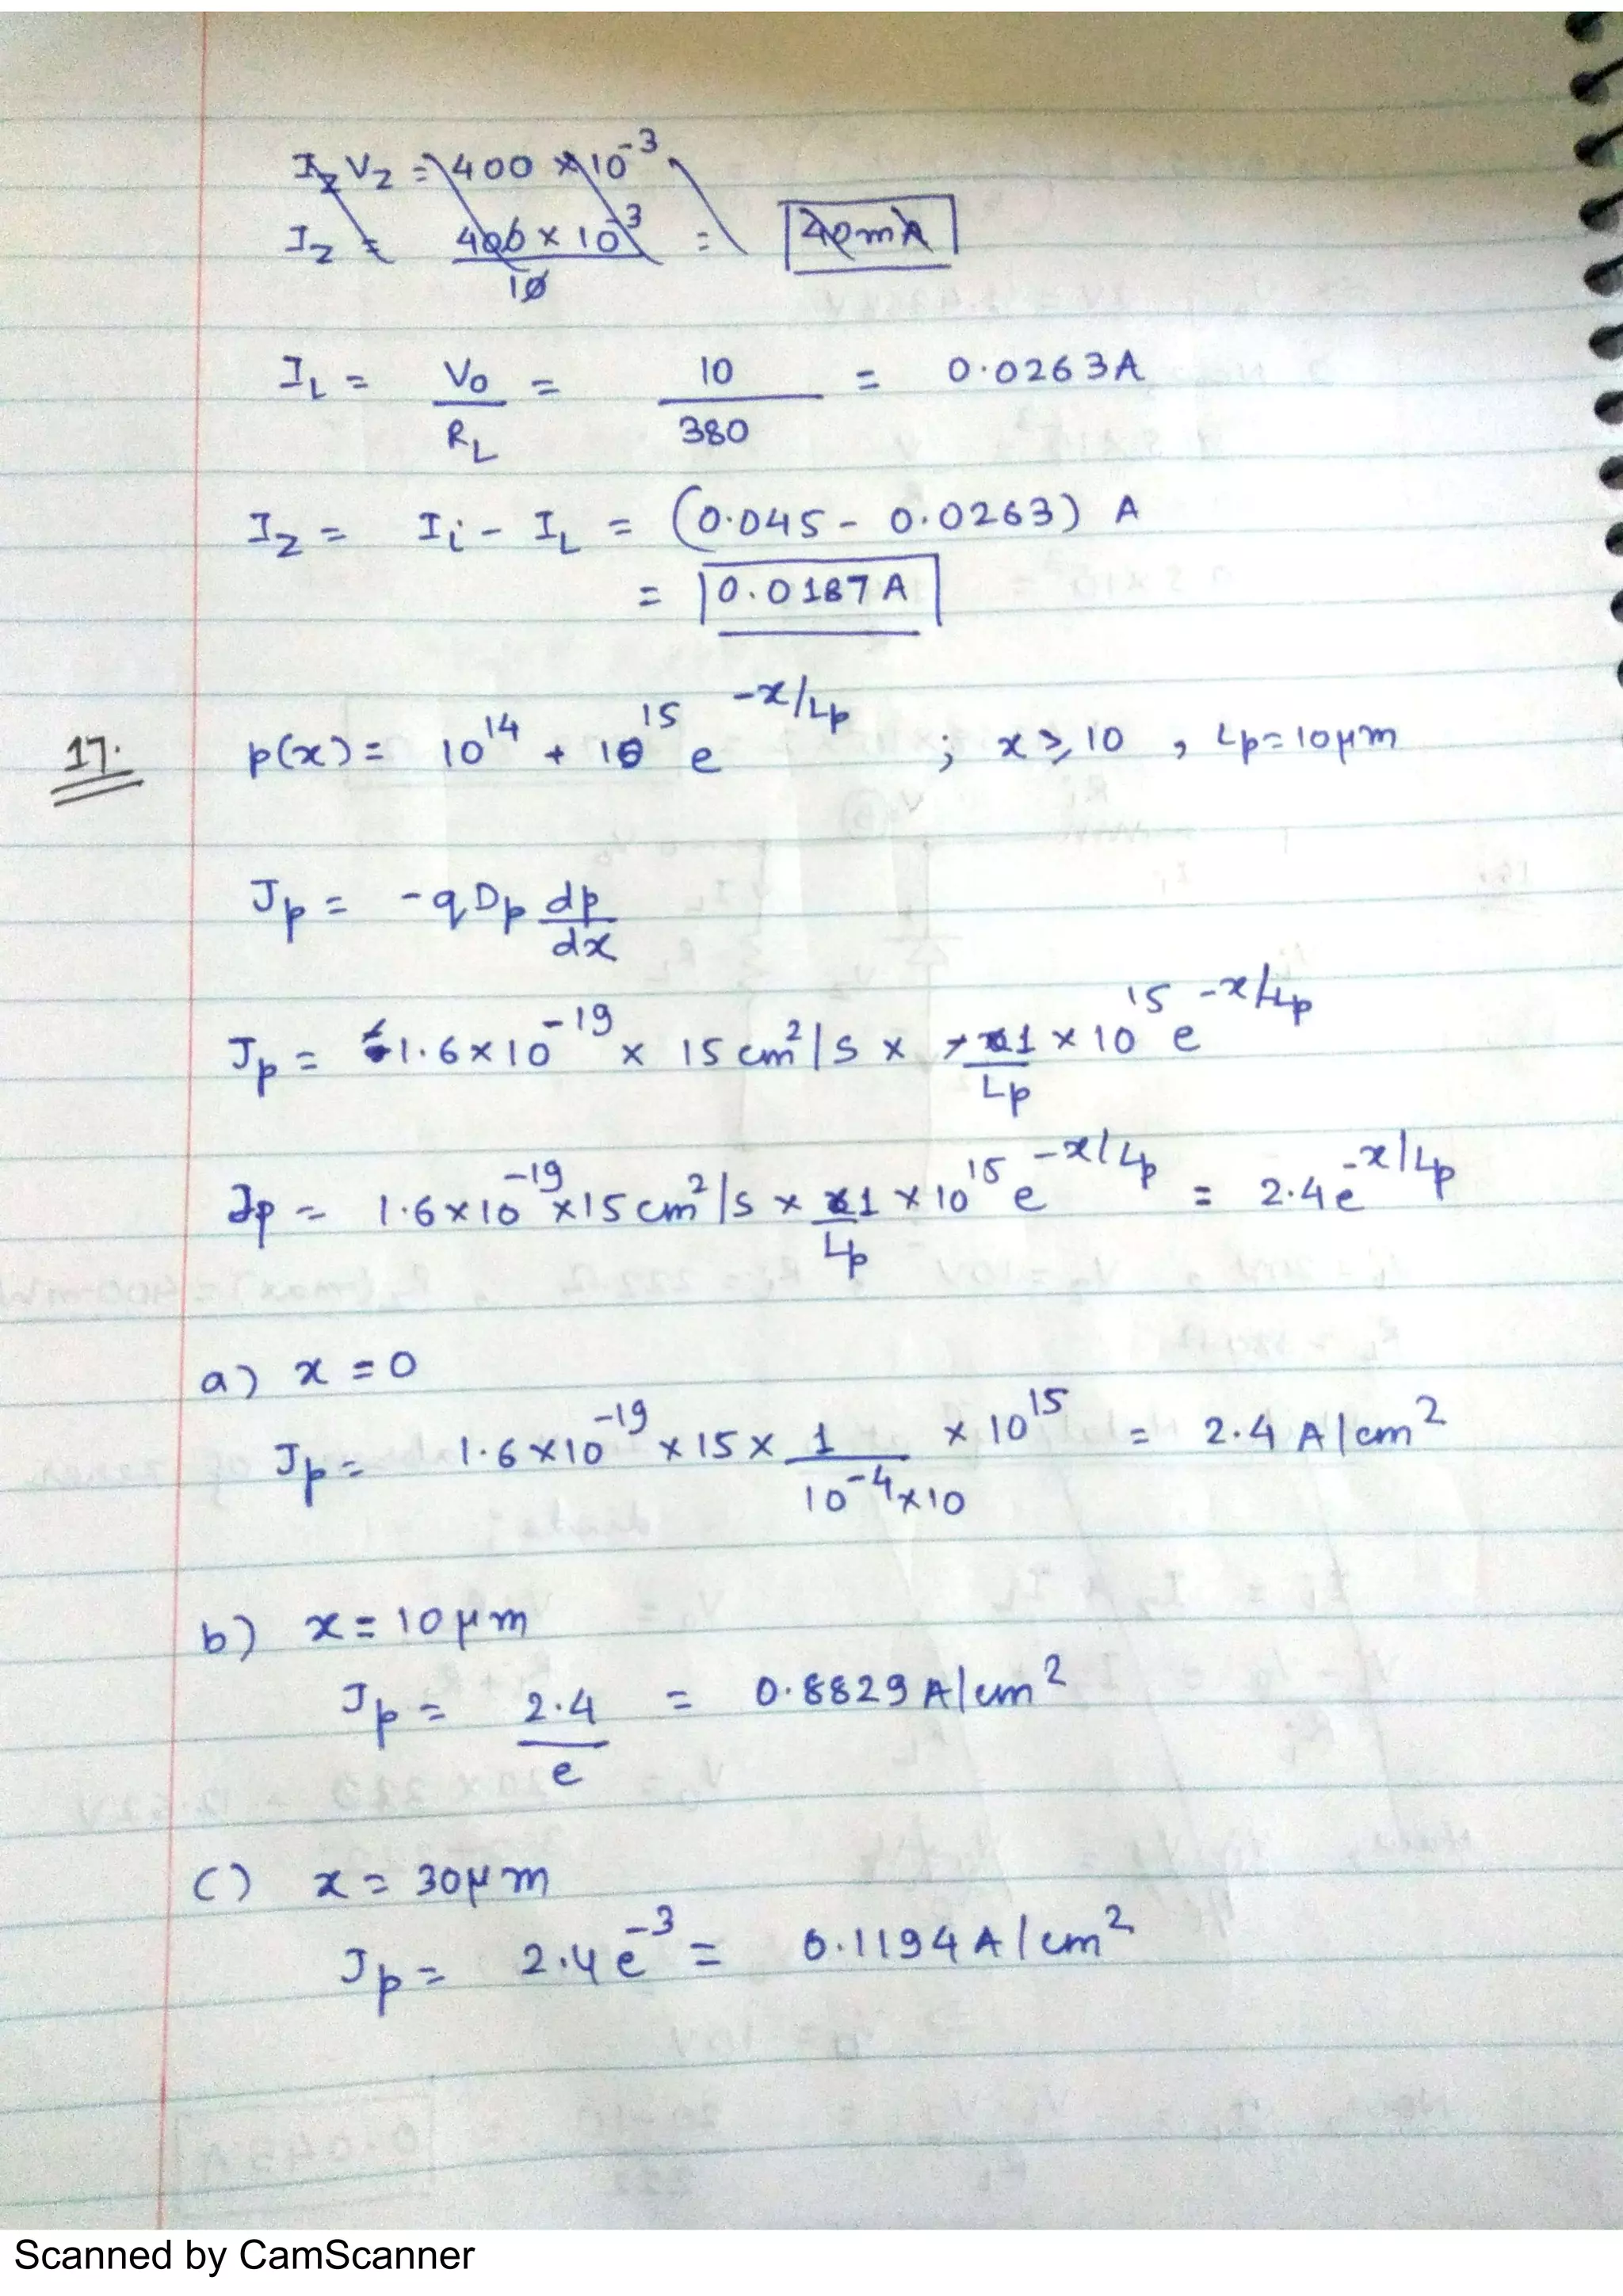 I_Z V_Z = 400 × 10^-3
I_Z = 400 × 10^-3 / 10 = 40mA
I_L = V_o / R_L = 10 / 380 = 0.0263A
I_Z = I_i - I_L = (0.045 - 0.0263) A
= 0.0187A
17. p(x) = 10^14 + 10^15 e^-x/Lp ; x ≥ 10 , Lp = 10μm
Jp = -qDp dp/dx
Jp = 1.6×10^-19 × 15cm²/s × 1/Lp × 10^15 e^-x/Lp
Jp = 1.6×10^-19 × 15cm²/s × 1/Lp × 10^15 e^-x/Lp = 2.4e^-x/Lp
a) x = 0
Jp = 1.6×10^-19 × 15 × 1/(10^-4×10) × 10^15 = 2.4 A/cm²
b) x = 10μm
Jp = 2.4/e = 0.8829 A/cm²
c) x = 30μm
Jp = 2.4e^-3 = 0.1194 A/cm²
Scanned by CamScanner